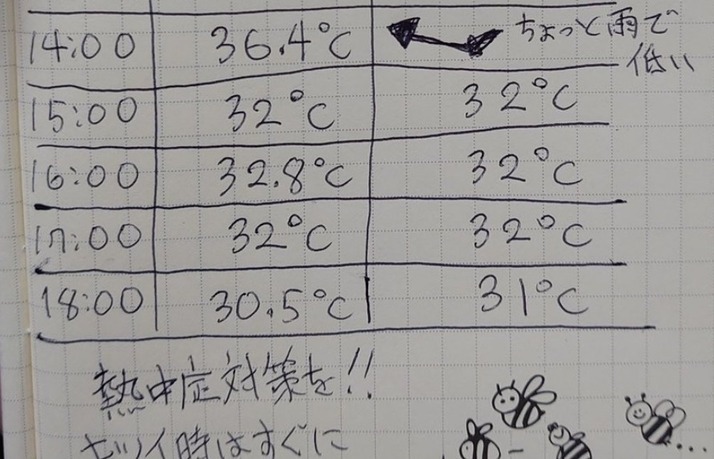 14:00 36.4℃ ちょっと雨で
低い
15:00 32℃ 32℃
16:00 32.8℃ 32℃
17:00 32℃ 32℃
18:00 30.5℃ 31℃
熱中症対策を!!
キツイ時はすぐに